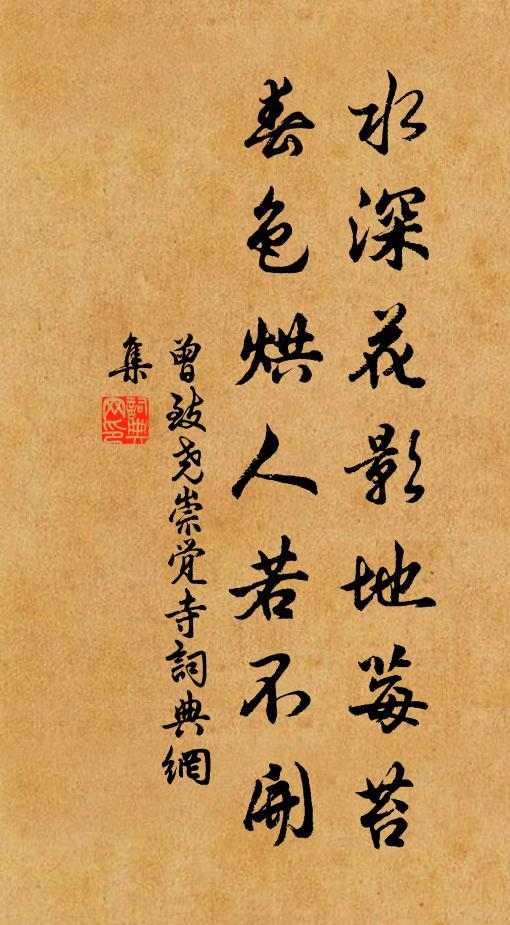 水深花影地莓苔
春色烘人若不開
曾致尧崇觉寺詞典網
集
詞典
网印